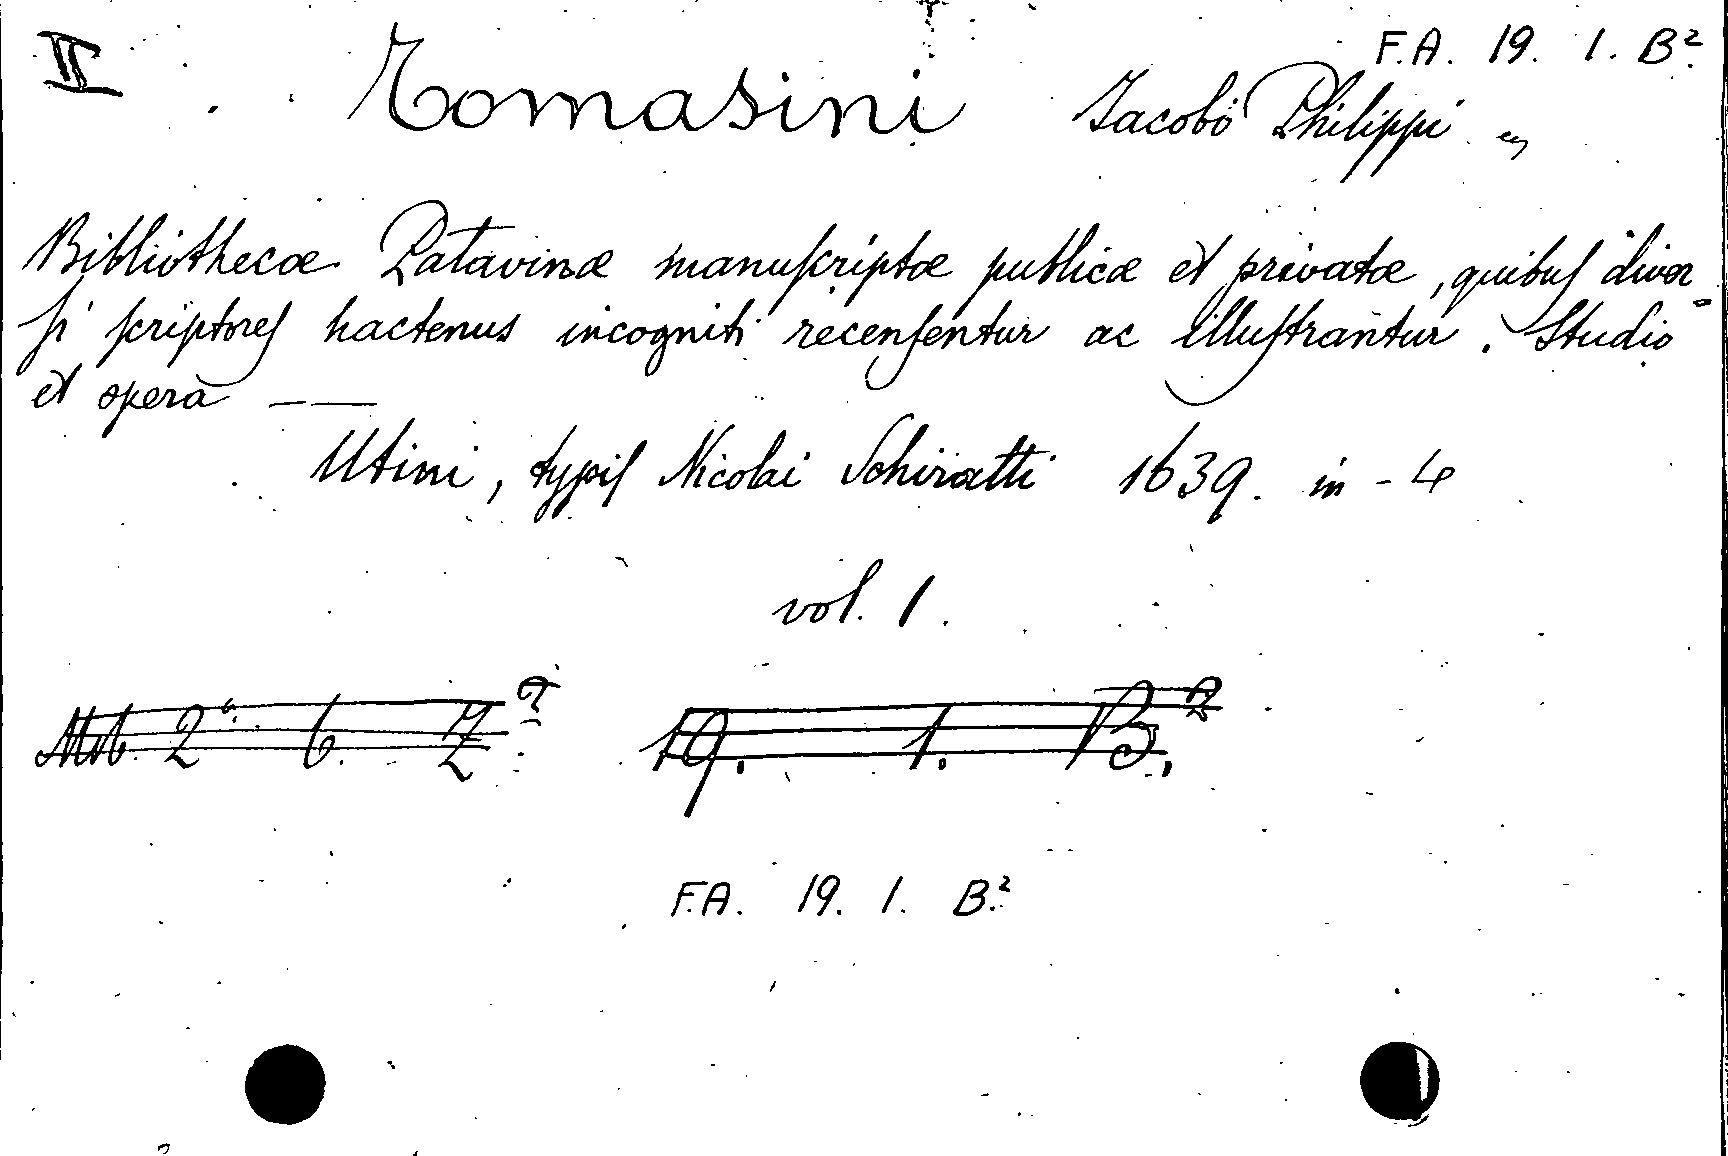 II F.A. 19. 1. B²
Tomasini Jacobo Philippi
Bibliothecæ Patavinæ manuſcriptæ publicæ et privatæ, quibuſ diver-
ſi ſcriptoreſ hactenus incogniti recenſentur ac illuſtrantur. Studio
et opera ——
Utini, typiſ Nicolai Schiratti 1639. in-4
vol. 1.
2. 6. Z 19. 1. B.²
F.A. 19. 1. B²